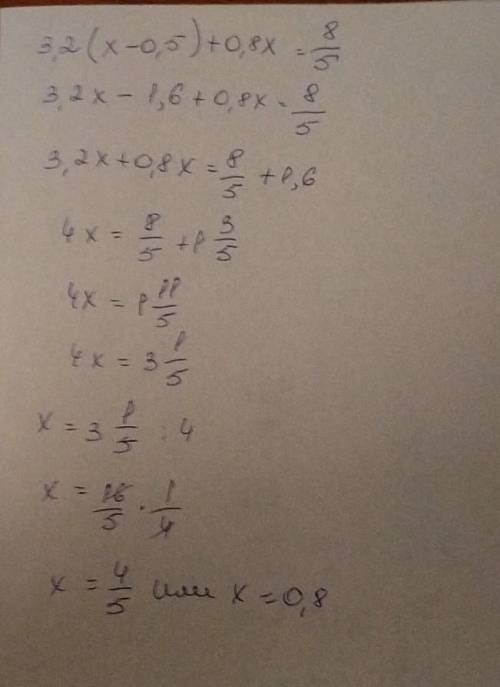 3,2(x-0,5)+0,8x=8/5
3,2x-1,6+0,8x=8/5
3,2x+0,8x=8/5+1,6
4x=8/5+1 3/5
4x=1 11/5
4x=3 1/5
x=3 1/5:4
x=16/5·1/4
x=4/5 или x=0,8